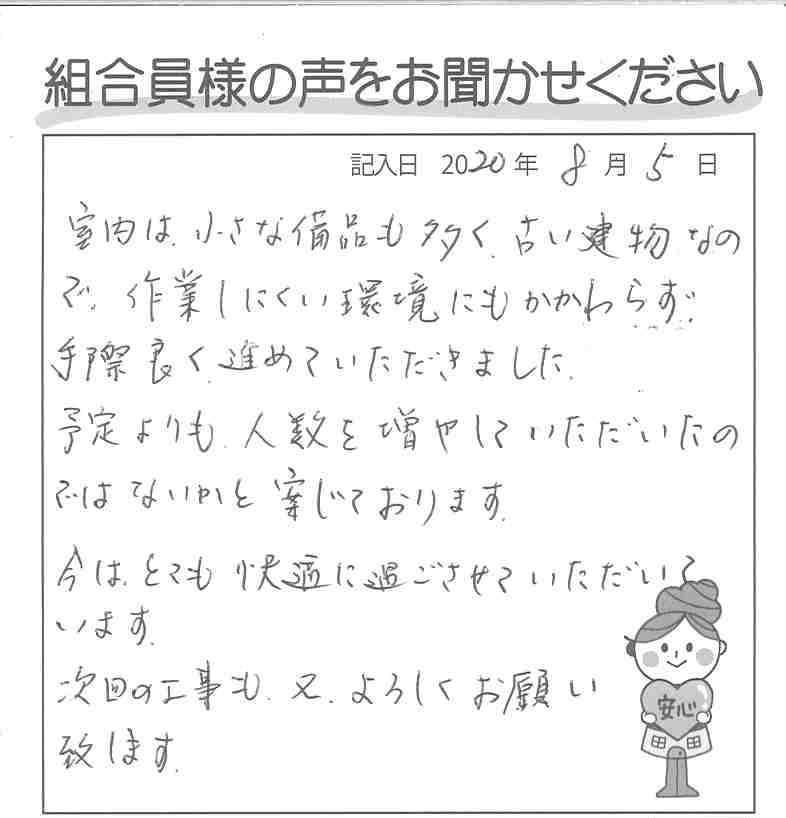 組合員様の声をお聞かせください
記入日 2020年 8月 5日
室内は、小さな備品も多く、古い建物なの
で、作業しにくい環境にもかかわらず、
手際良く、進めていただきました。
予定よりも、人数を増やしていただいたの
ではないかと案じております。
今は、とても快適に過ごさせていただいて
います。
次回の工事も、又、よろしくお願い
致します。
安心